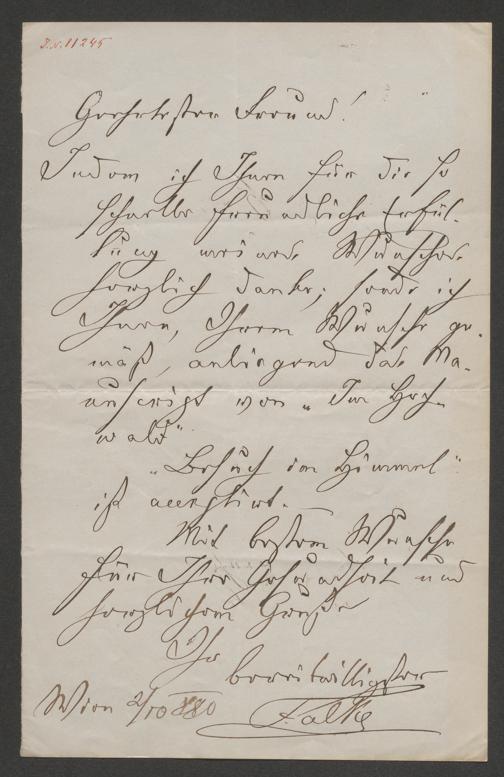 I.N. 11245
Geehrtester Freund!
Indem ich Ihnen für die so
schnelle freundliche Erfül-
lung meines Wunsches
herzlich danke, sende ich
Ihnen, Ihrem Wunsche ge-
mäß, anliegend das Ma-
nuscript von „Im Hoch-
wald".
„Besuch im Himmel"
ist acceptirt.
Mit bestem Wunsche
für Ihre Gesundheit und
herzlichem Gruße
Ihr
bereitwilligster
Falke
Wien 2/10 880